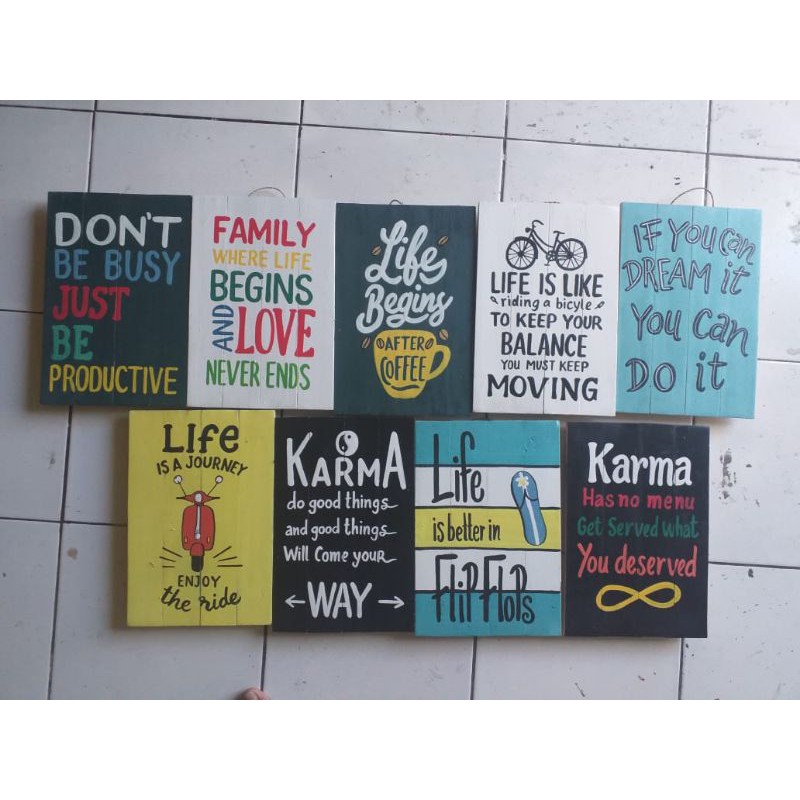 DON'T
BE BUSY
JUST
BE
PRODUCTIVE
FAMILY
WHERE LIFE
BEGINS
AND LOVE
NEVER ENDS
Life
Begins
AFTER
COFFEE
LIFE IS LIKE
riding a bicyle
TO KEEP YOUR
BALANCE
YOU MUST KEEP
MOVING
IF YOU Can
DREAM it
You Can
DO it
Life
IS A JOURNEY
ENJOY
the ride
KARMA
do good things
and good things
Will Come your
WAY
Life
is better in
FlipFlops
Karma
Has no menu
Get Served what
You deserved